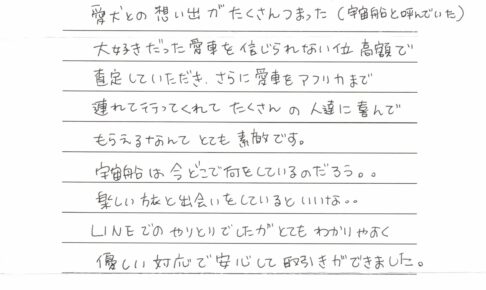 愛犬との想い出がたくさんつまった（宇宙船と呼んでいた）
大好きだった愛車を信じられない位高額で
査定していただき、さらに愛車をアフリカまで
連れて行ってくれてたくさんの人達に喜んで
もらえるなんてとても素敵です。
宇宙船は今どこで何をしているのだろう。。
楽しい旅と出会いをしているといいな..
LINEでのやりとりでしたがとてもわかりやすく
優しい対応で安心して取引きができました。